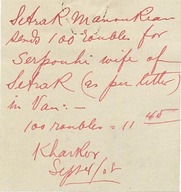 Setrak Manoukian
sends 100 roubles for
Serpouhi wife of
Setrak (as per letter)
in Van: —
100 roubles = 11
Kharkov
Sept /01